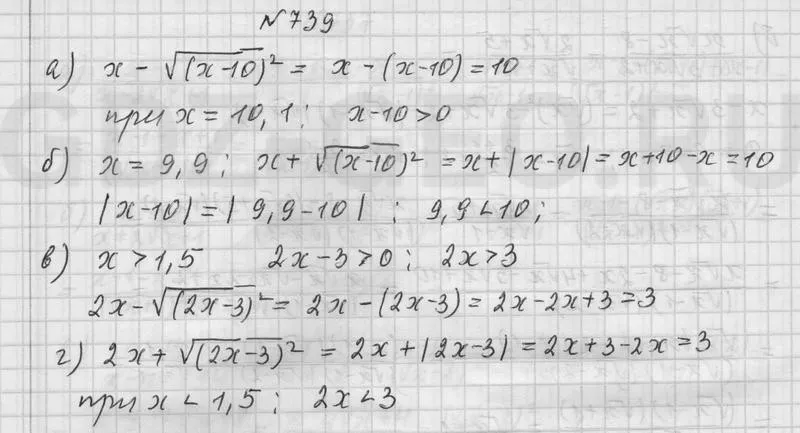 №739
а) x - √(x-10)² = x - (x-10) = 10
при x = 10,1; x-10>0
б) x = 9,9; x + √(x-10)² = x + |x-10| = x+10-x = 10
|x-10| = |9,9-10|; 9,9<10;
в) x>1,5 2x-3>0; 2x>3
2x - √(2x-3)² = 2x - (2x-3) = 2x-2x+3 = 3
г) 2x + √(2x-3)² = 2x + |2x-3| = 2x+3-2x = 3
при x < 1,5; 2x<3